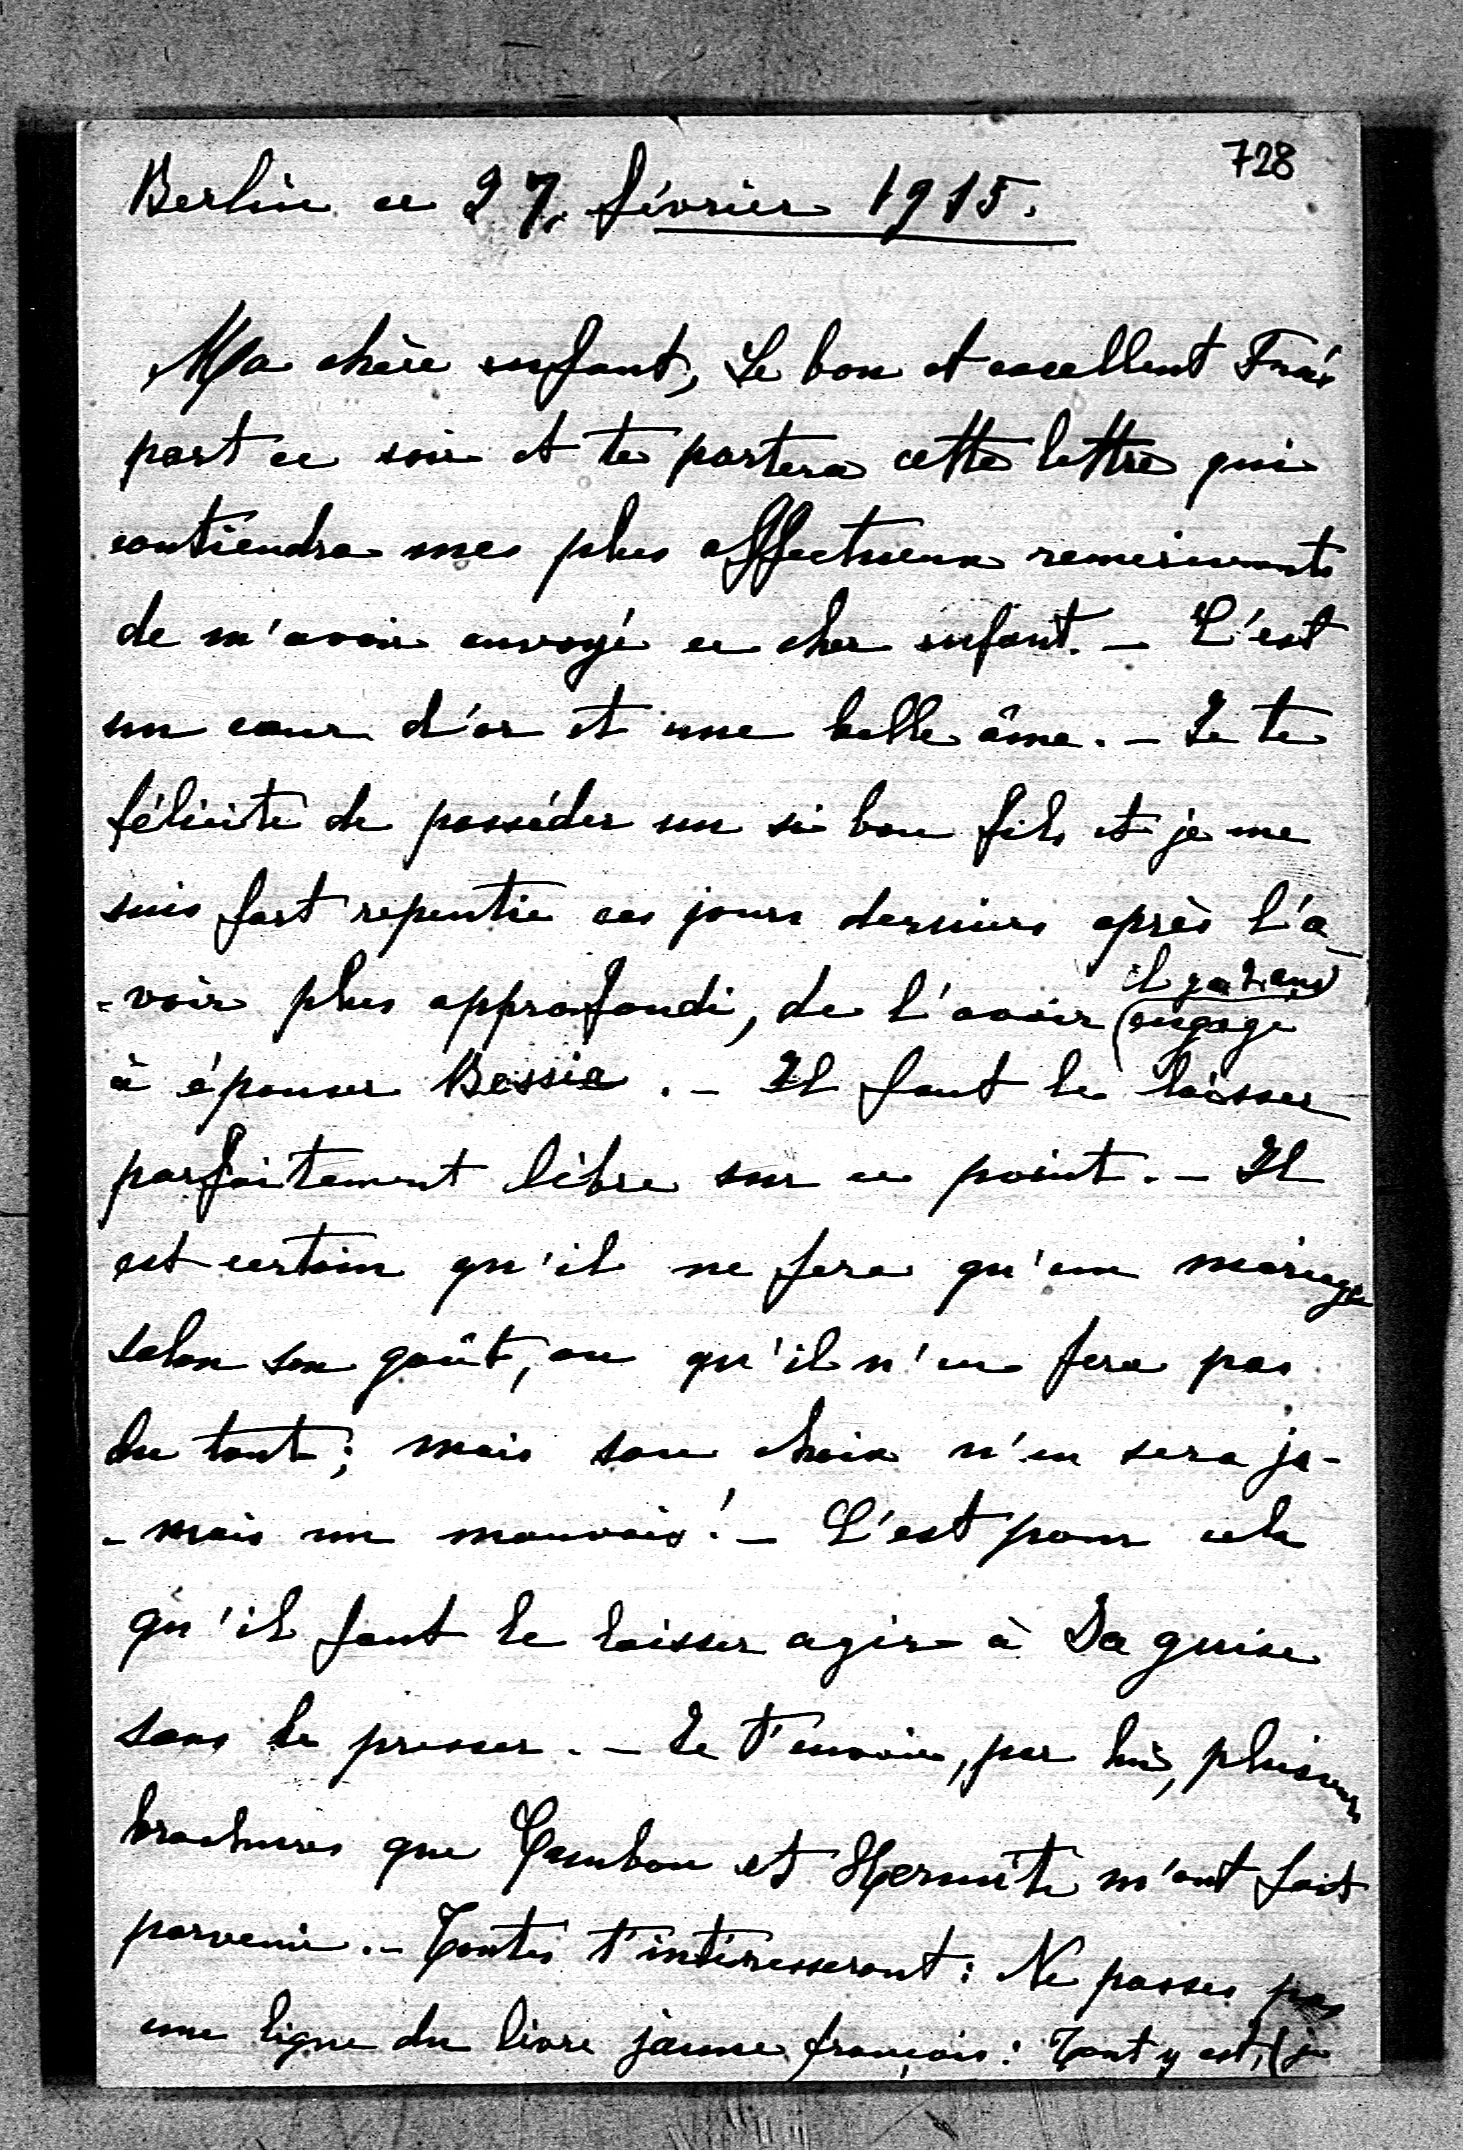 728
Berlin ce 27. février 1915.
Ma chère enfant, Le bon et excellent
part ce soir et te portera cette lettre qui
contiendra mes plus affectueux remerciements
de m'avoir envoyé ce cher enfant. - C'est
un cœur d'or et une belle âme. - Je te
félicite de posséder un si bon fils et je me
suis fort repentie ces jours derniers après l'a-
-voir plus approfondi, de l'avoir (engagé
il y a 2 ans)
à épouser Bessie. - Il faut le laisser
parfaitement libre sur ce point. - Il
est certain qu'il ne fera qu'un mariage
selon son goût, ou qu'il n'en fera pas
du tout; mais son choix n'en sera ja-
-mais un mauvais! - C'est pour cela
qu'il faut le laisser agir à sa guise
sans le presser. - Je t'envoie, par lui, plusieurs
brochures que Cambon et Hermite m'ont fait
parvenir. - Toutes t'intéresseront: Ne passes pas
une ligne du livre jaune français: Tout y est, (je